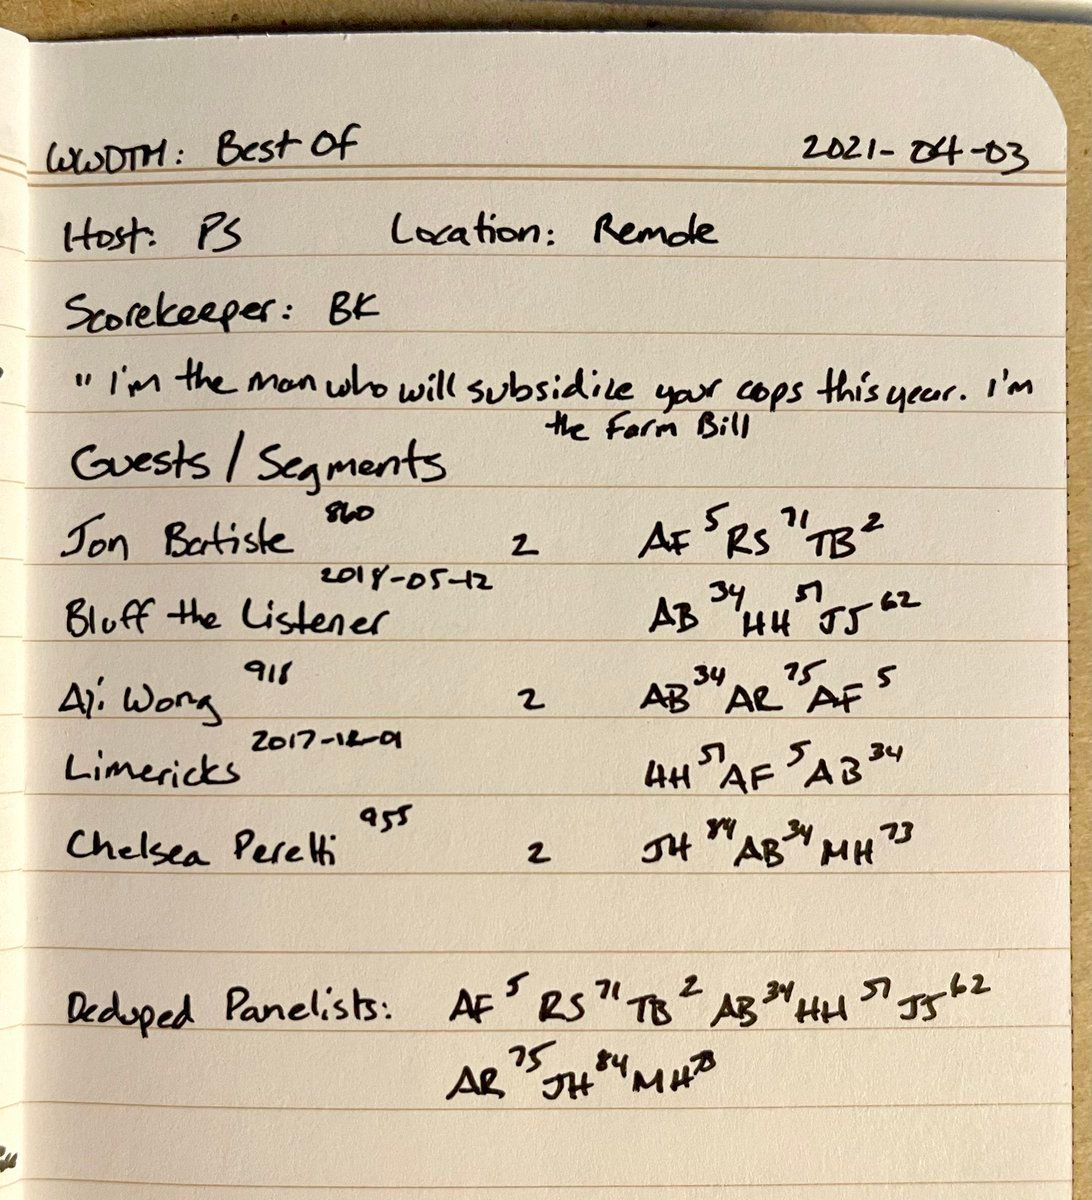 WWDTM: Best Of 2021-04-03
Host: PS Location: Remote
Scorekeeper: BK
"I'm the man who will subsidize your cops this year. I'm
the Farm Bill
Guests / Segments
860
Jon Batiste 2 AF 5 RS 71 TB 2
2018-05-12
Bluff the Listener AB 34 HH 51 JJ 62
918
Ali Wong 2 AB 34 AR 75 AF 5
2017-12-01
Limericks HH 51 AF 5 AB 34
955
Chelsea Peretti 2 JH 84 AB 34 MH 73
Deduped Panelists: AF 5 RS 71 TB 2 AB 34 HH 51 JJ 62
AR 75 JH 84 MH 73